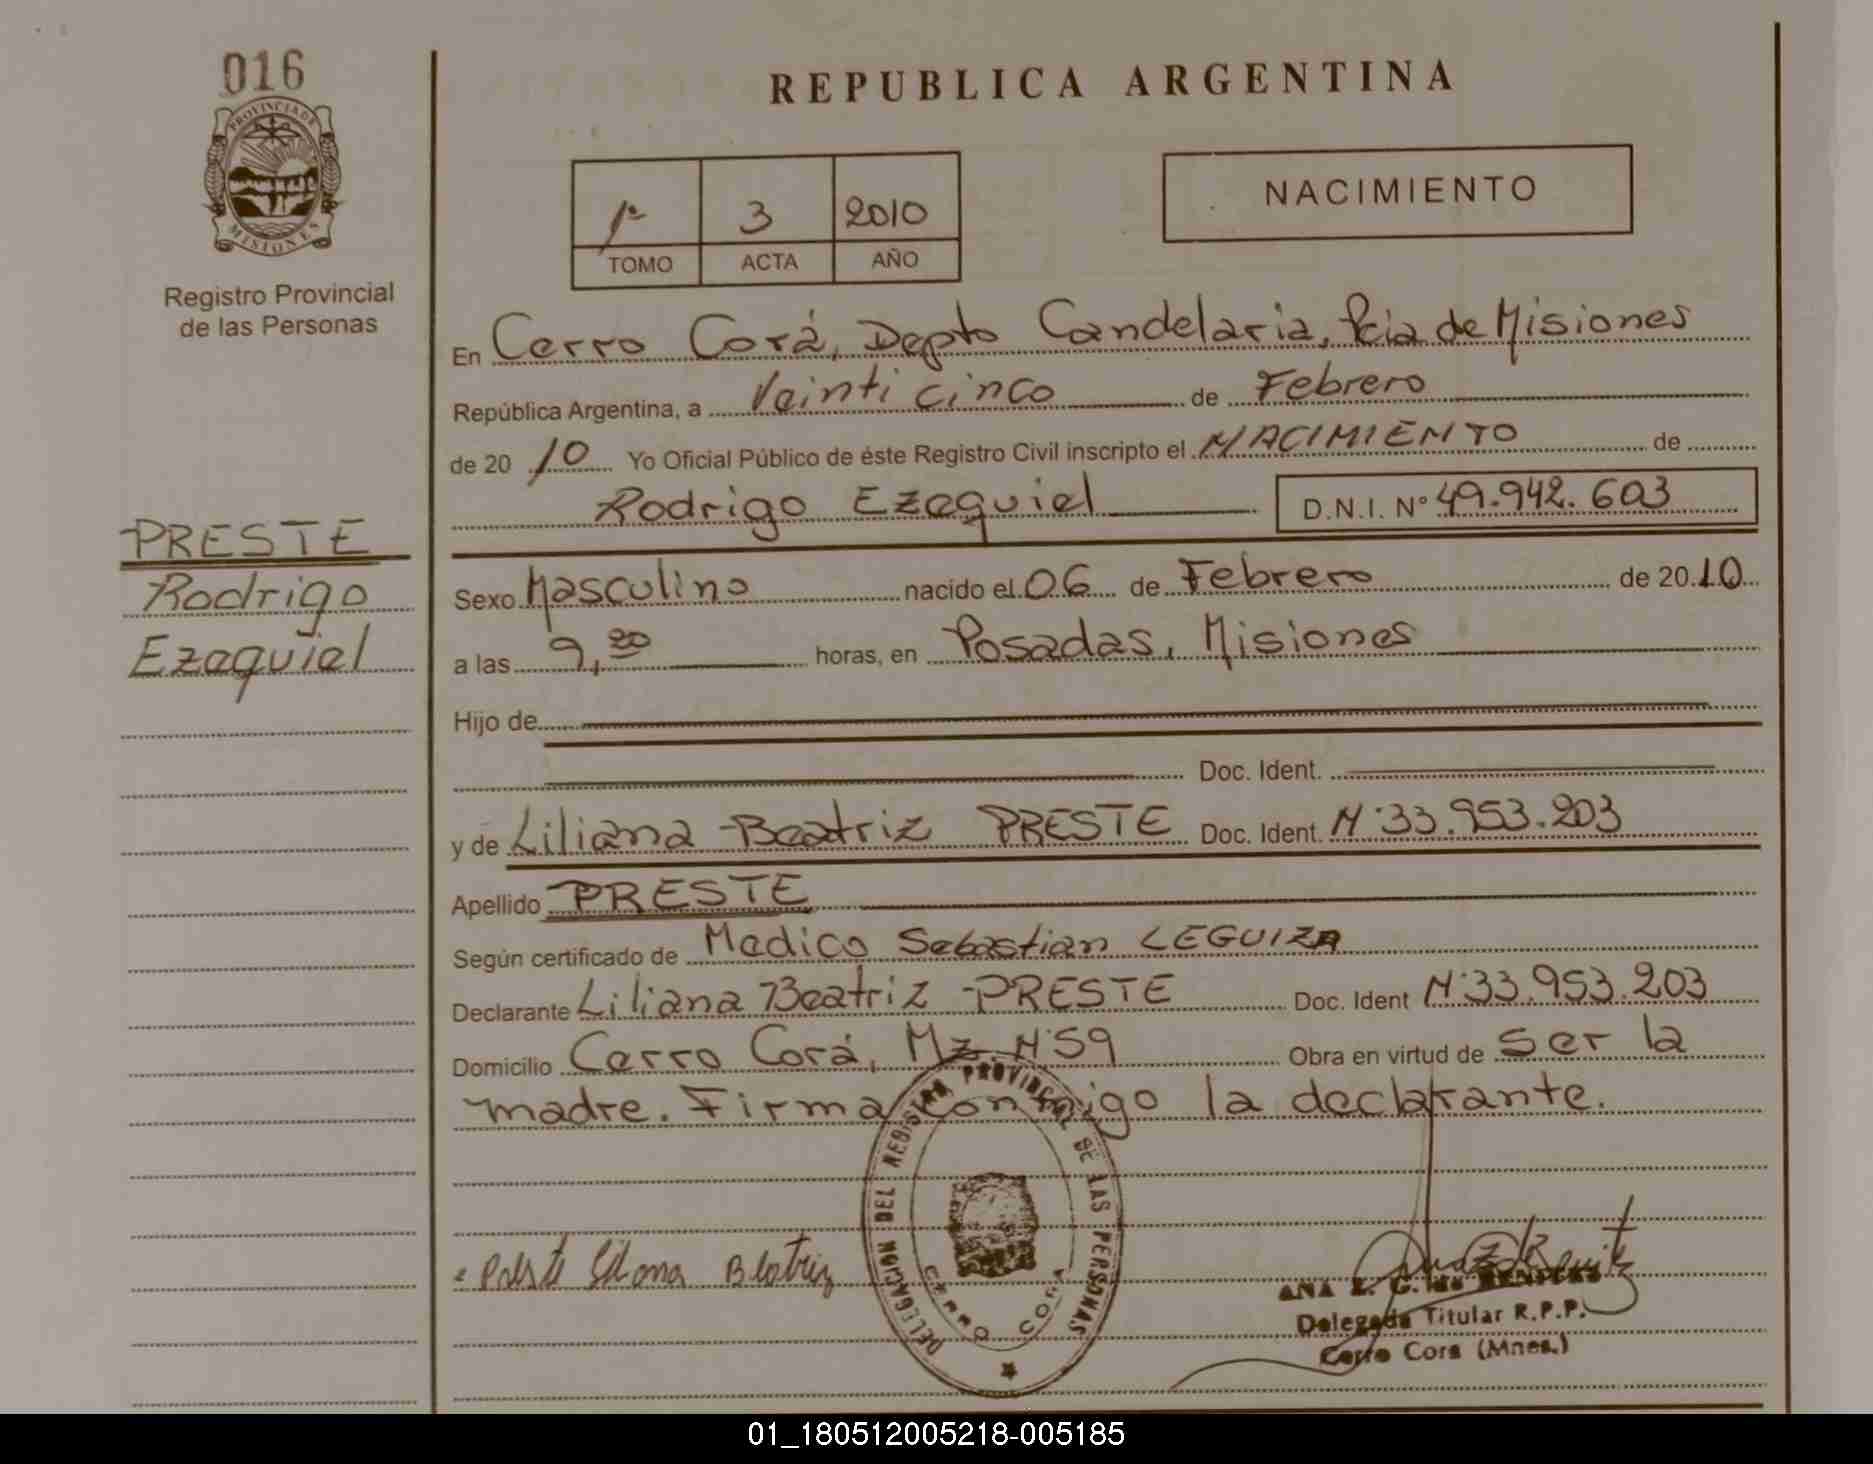 016
PROVINCIA DE
MISIONES
Registro Provincial
de las Personas
PRESTE
Rodrigo
Ezequiel
REPUBLICA ARGENTINA
1º 3 2010
TOMO ACTA AÑO
NACIMIENTO
En Cerro Corá, Depto Candelaria, Pcia de Misiones
República Argentina, a Veinticinco de Febrero
de 20 10 Yo Oficial Público de éste Registro Civil inscripto el NACIMIENTO de
Rodrigo Ezequiel D.N.I. Nº 49.942.603
Sexo Masculino nacido el 06 de Febrero de 2010
a las 9,20 horas, en Posadas, Misiones
Hijo de
Doc. Ident.
y de Liliana Beatriz PRESTE Doc. Ident. Nº 33.953.203
Apellido PRESTE
Según certificado de Medico Sebastian LEGUIZA
Declarante Liliana Beatriz PRESTE Doc. Ident Nº 33.953.203
Domicilio Cerro Corá, Mz Nº 59 Obra en virtud de ser la
madre. Firma conmigo la declarante.
DELEGACION DEL REGISTRO PROVINCIAL DE LAS PERSONAS
CERRO CORA
Preste Liliana Beatriz
ANA E. G. de
Delegada Titular R.P.P.
Cerro Cora (Mnes.)
01_180512005218-005185